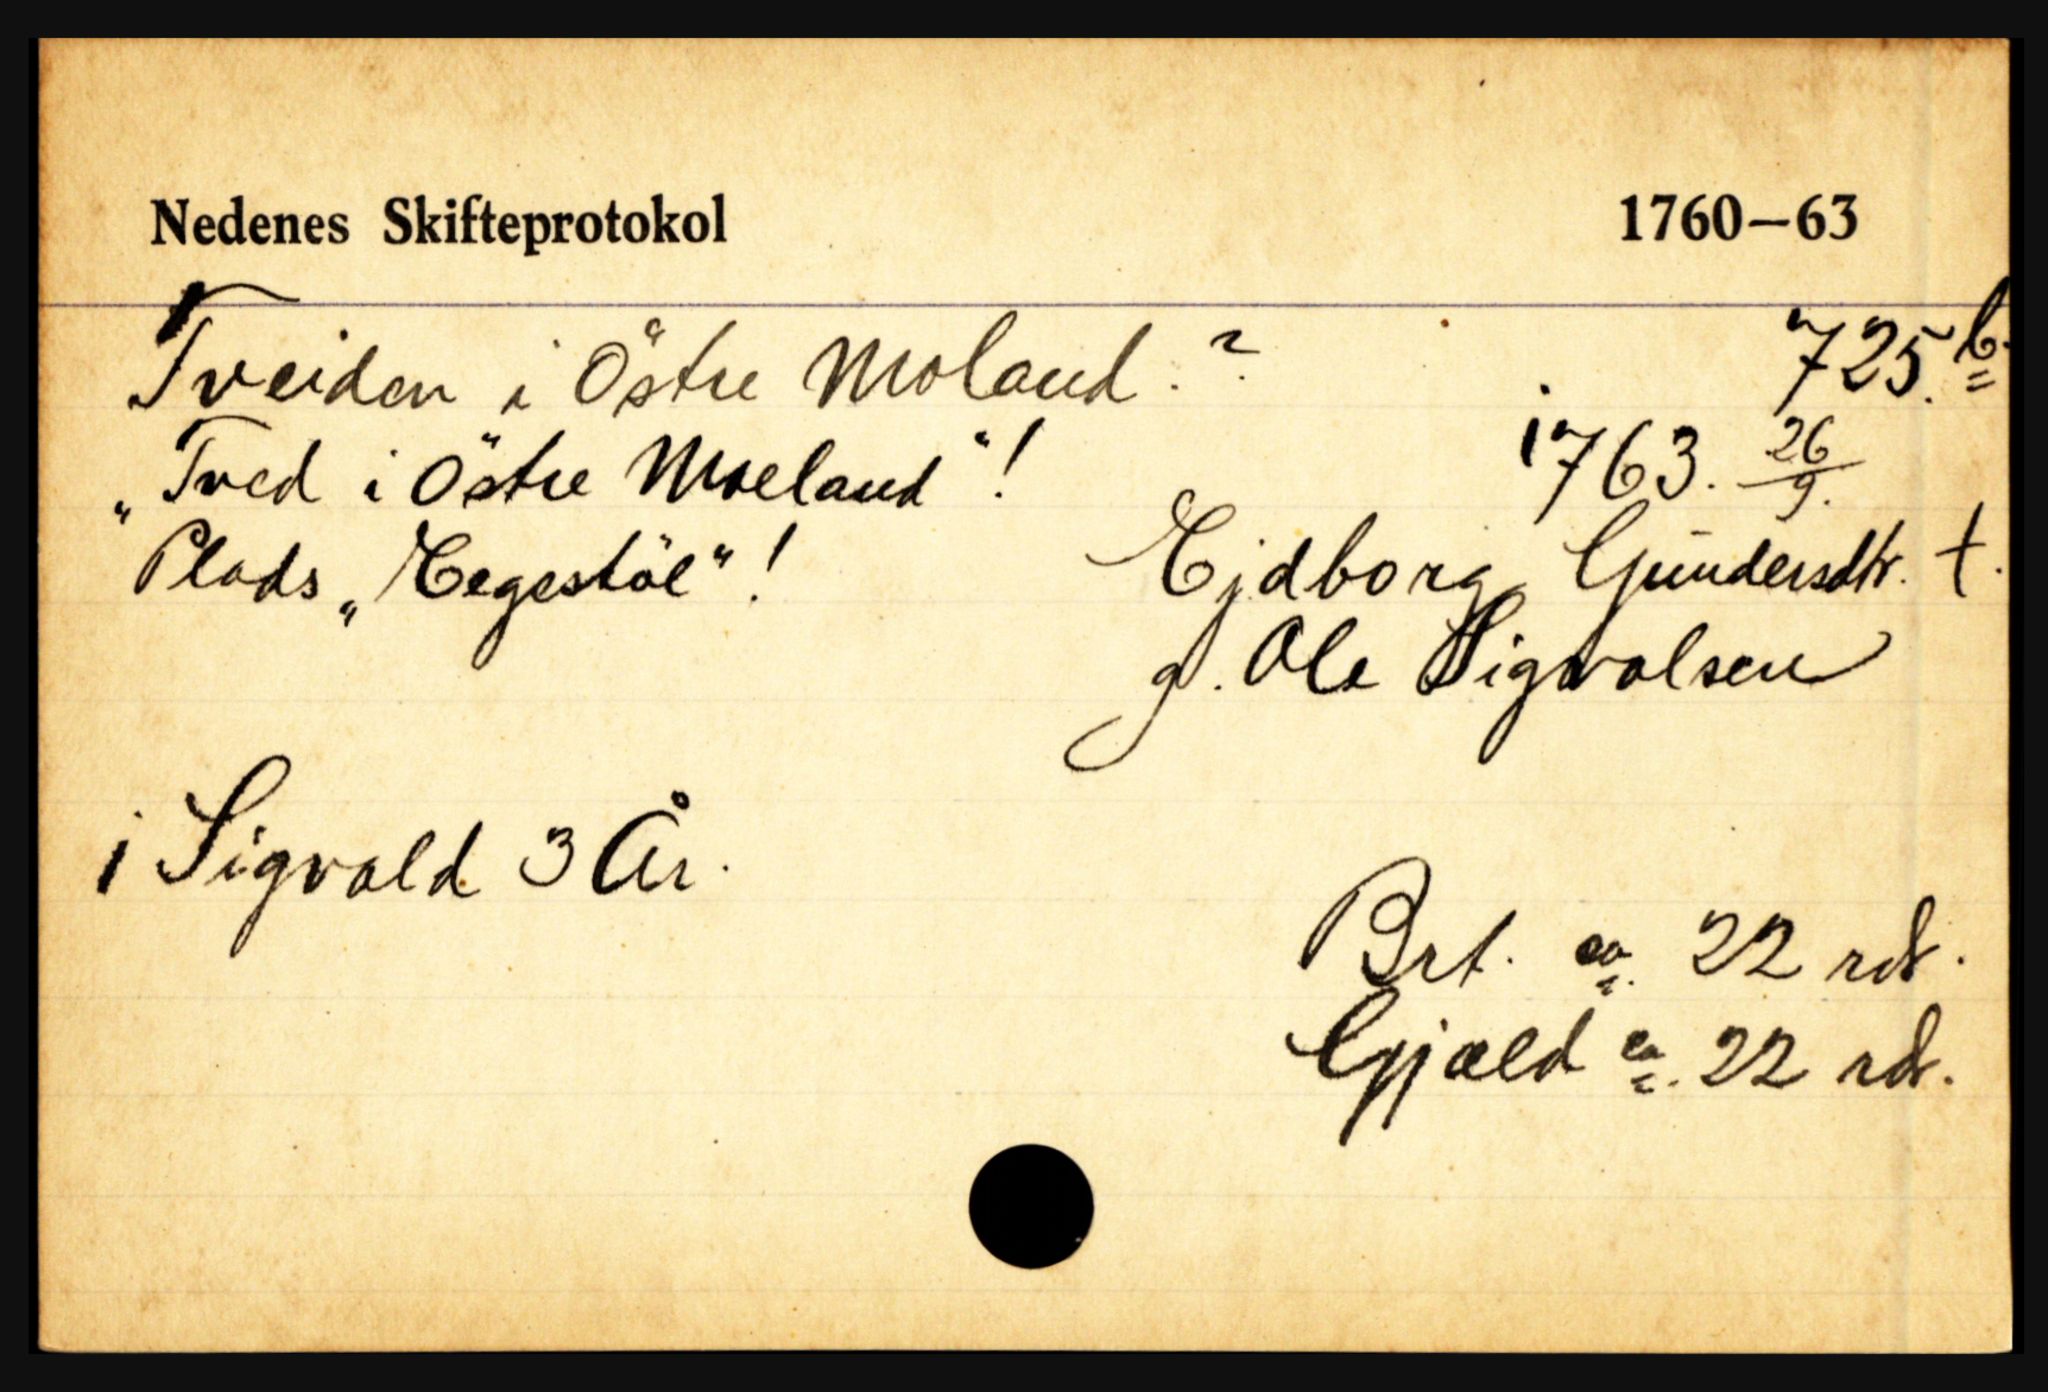 Nedenes Skifteprotokol 1760—63
Tveiden i Östre Moland.? 725.b.
„Tved i Östre Moeland"! 1763. 26/9.
Plads „Eegestöl"! Ejdborg Gundersdtr. †.
g. Ole Sigvolsen
1 Sigvald 3 År.
Brt. ca. 22 rdr.
Gjæld ca. 22 rdr.